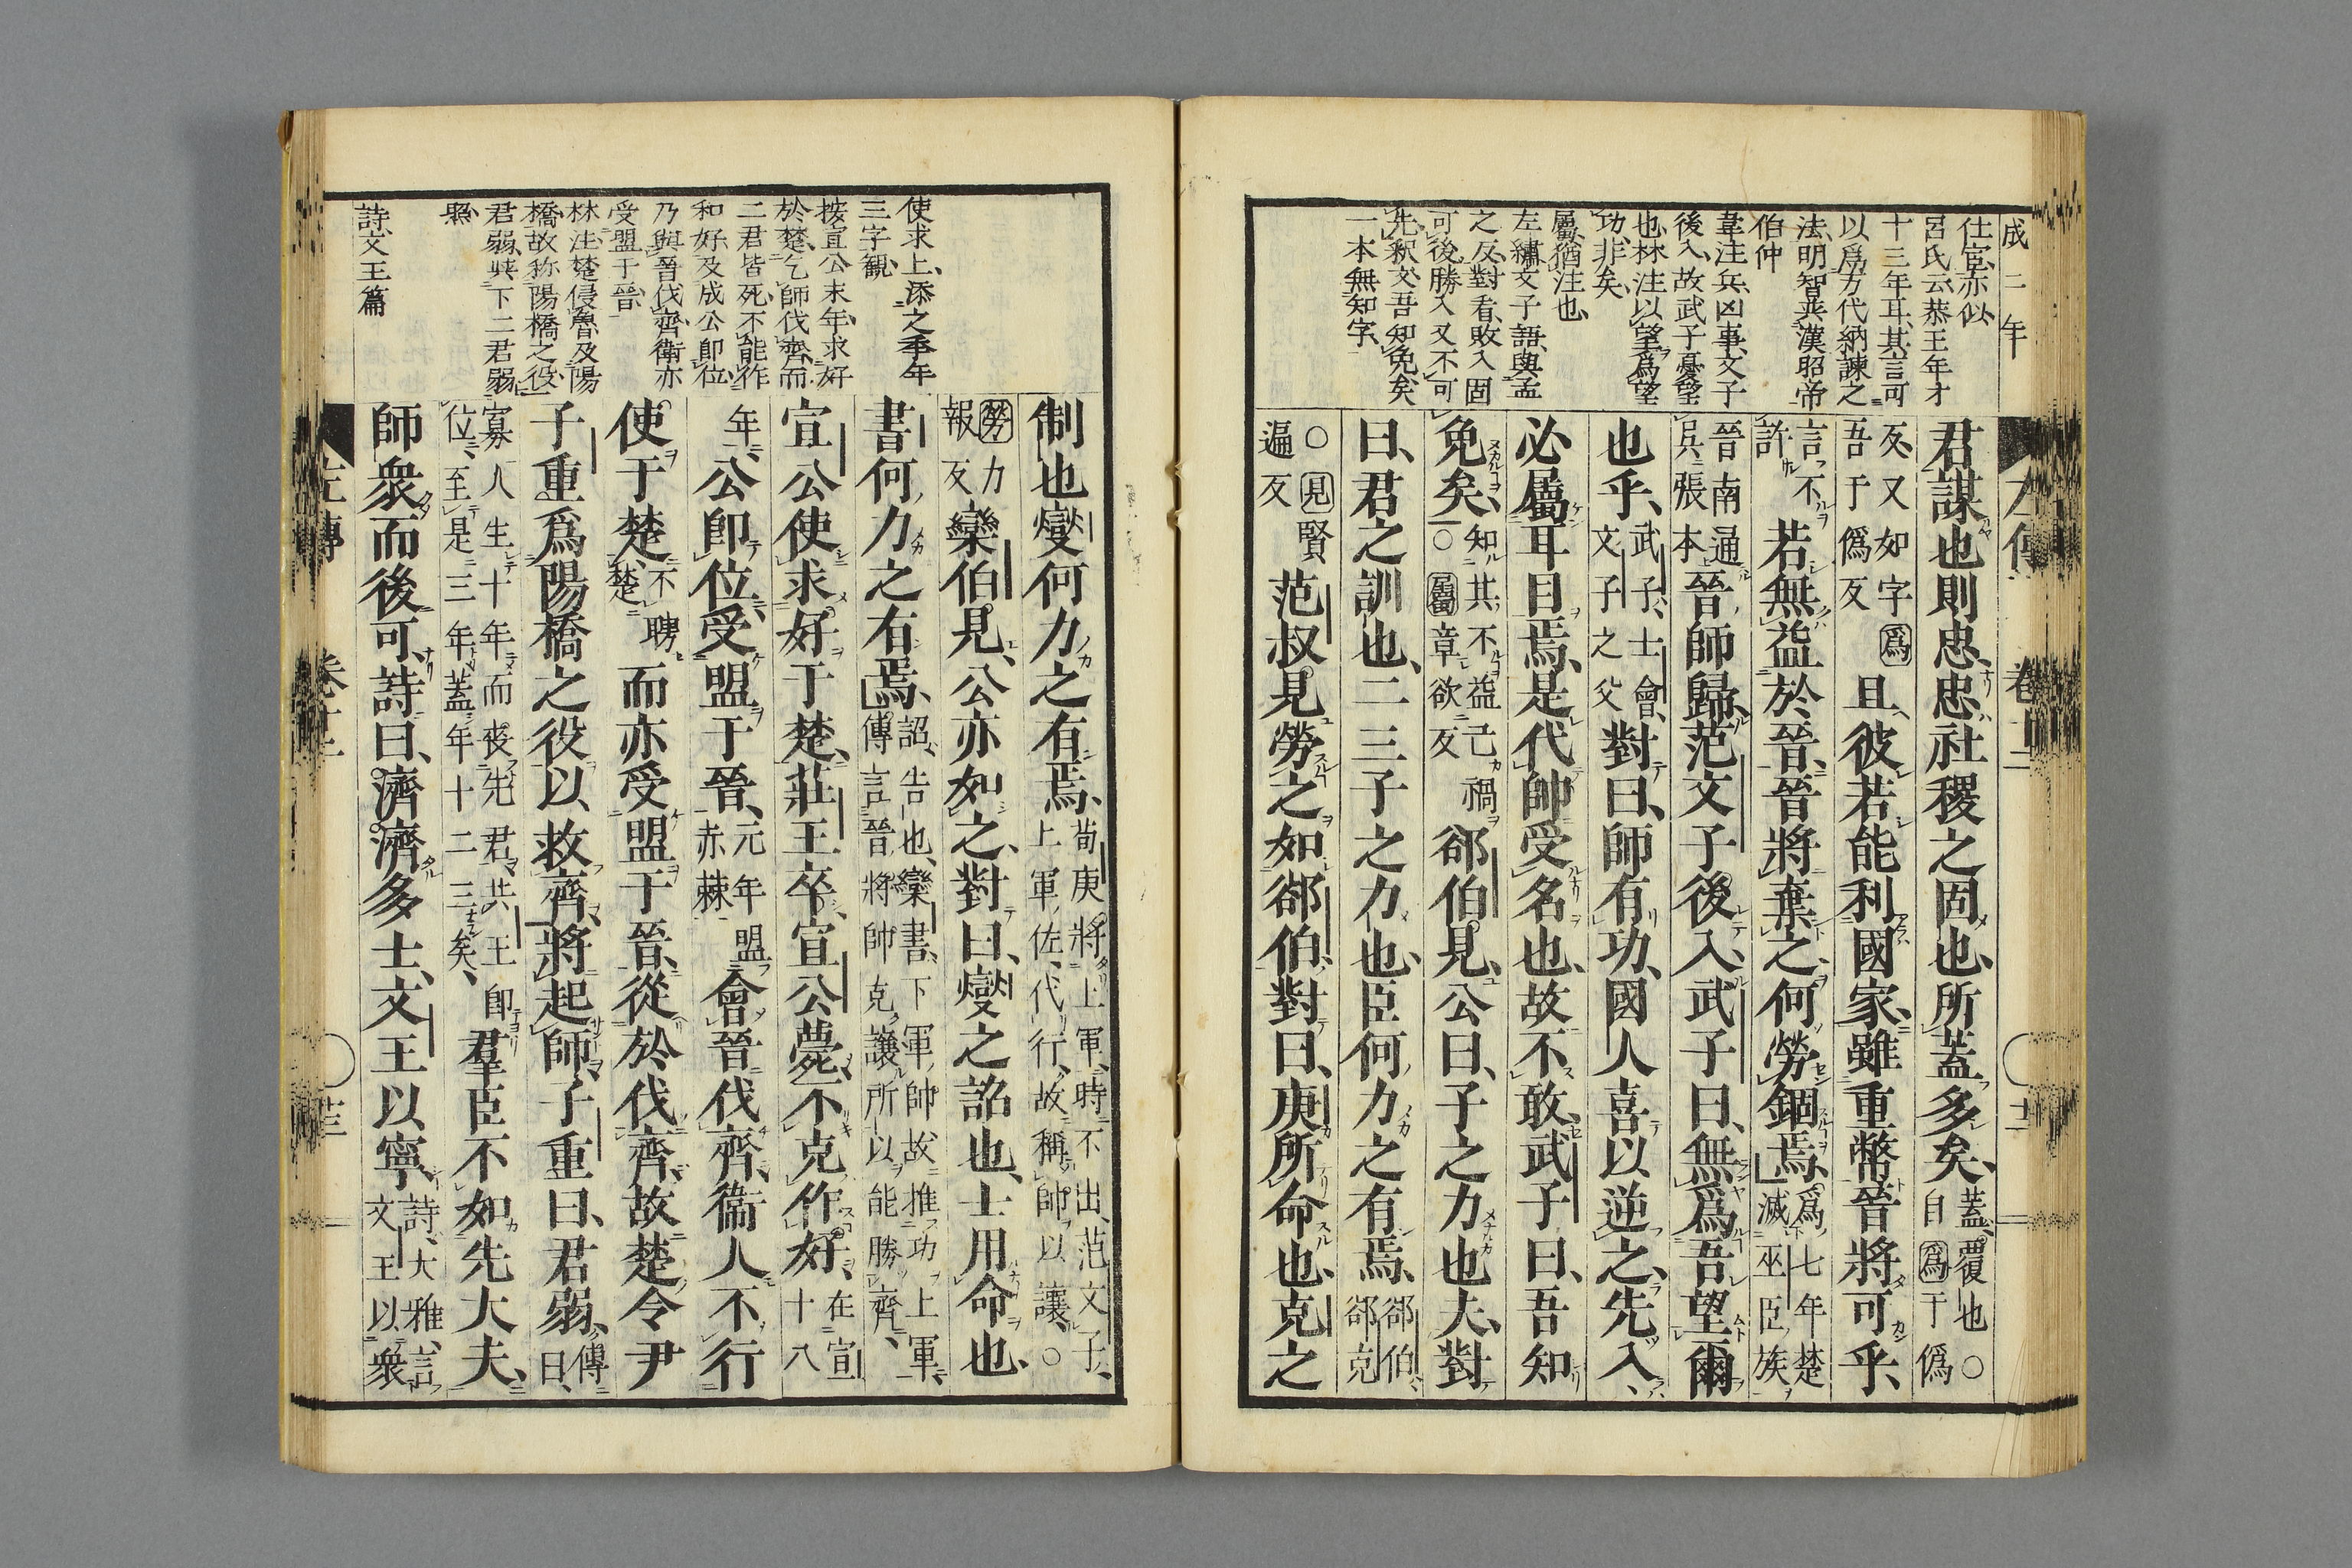 成二年
仕宦亦似
呂氏云恭王年才
十三年耳其言可
以爲万代納諫之
法明智英漢昭帝
伯仲
韋注兵凶事文子
後入故武子憂望
也林注以望爲望
功非矣
屬猶注也
左繡文子語與孟
之反對看敗入固
可後勝入又不可
先釈文吾知免矣
一本無知字
君謀也則忠忠社稷之固也所蓋多矣蓋覆也○自爲于僞
反又如字爲吾于僞反且彼若能利國家雖重幣晉將可乎
言不許若無益於晉晉將棄之何勞錮焉爲七年楚滅巫臣族
晉南通兵張本晉師歸范文子後入武子曰無爲吾望爾
也乎武子士會文子之父對曰師有功國人喜以逆之先入
必屬耳目焉是代帥受名也故不敢武子曰吾知
免矣知其不益己禍○屬章欲反郤伯見公曰子之力也夫對
曰君之訓也二三子之力也臣何力之有焉郤伯郤克
○見賢遍反范叔見勞之如郤伯對曰庚所命也克之
使求上添之季年
三字観
按宣公末年求好
於楚乞師伐齊而
二君皆死不能作
和好及成公即位
乃與晉伐齊衛亦
受盟于晉
林注楚侵魯及陽
橋故称陽橋之役
君弱與下二君弱
照
詩文王篇
制也燮何力之有焉荀庚將上軍時不出范文子上軍佐代行故稱帥以讓○
勞力報反欒伯見公亦如之對曰燮之詔也士用命也
書何力之有焉詔告也欒書下軍帥故推功上軍傳言晉將帥克讓所以能勝齊
宣公使求好于楚莊王卒宣公薨不克作好在宣十八
年公即位受盟于晉元年盟赤棘會晉伐齊衞人不行
使于楚不聘楚而亦受盟于晉從於伐齊故楚令尹
子重爲陽橋之役以救齊將起師子重曰君弱傳曰
寡人生十年而喪先君共王即位至是三年蓋年十二三矣羣臣不如先大夫
師衆而後可詩曰濟濟多士文王以寧詩大雅言文王以衆
左傳 卷十二